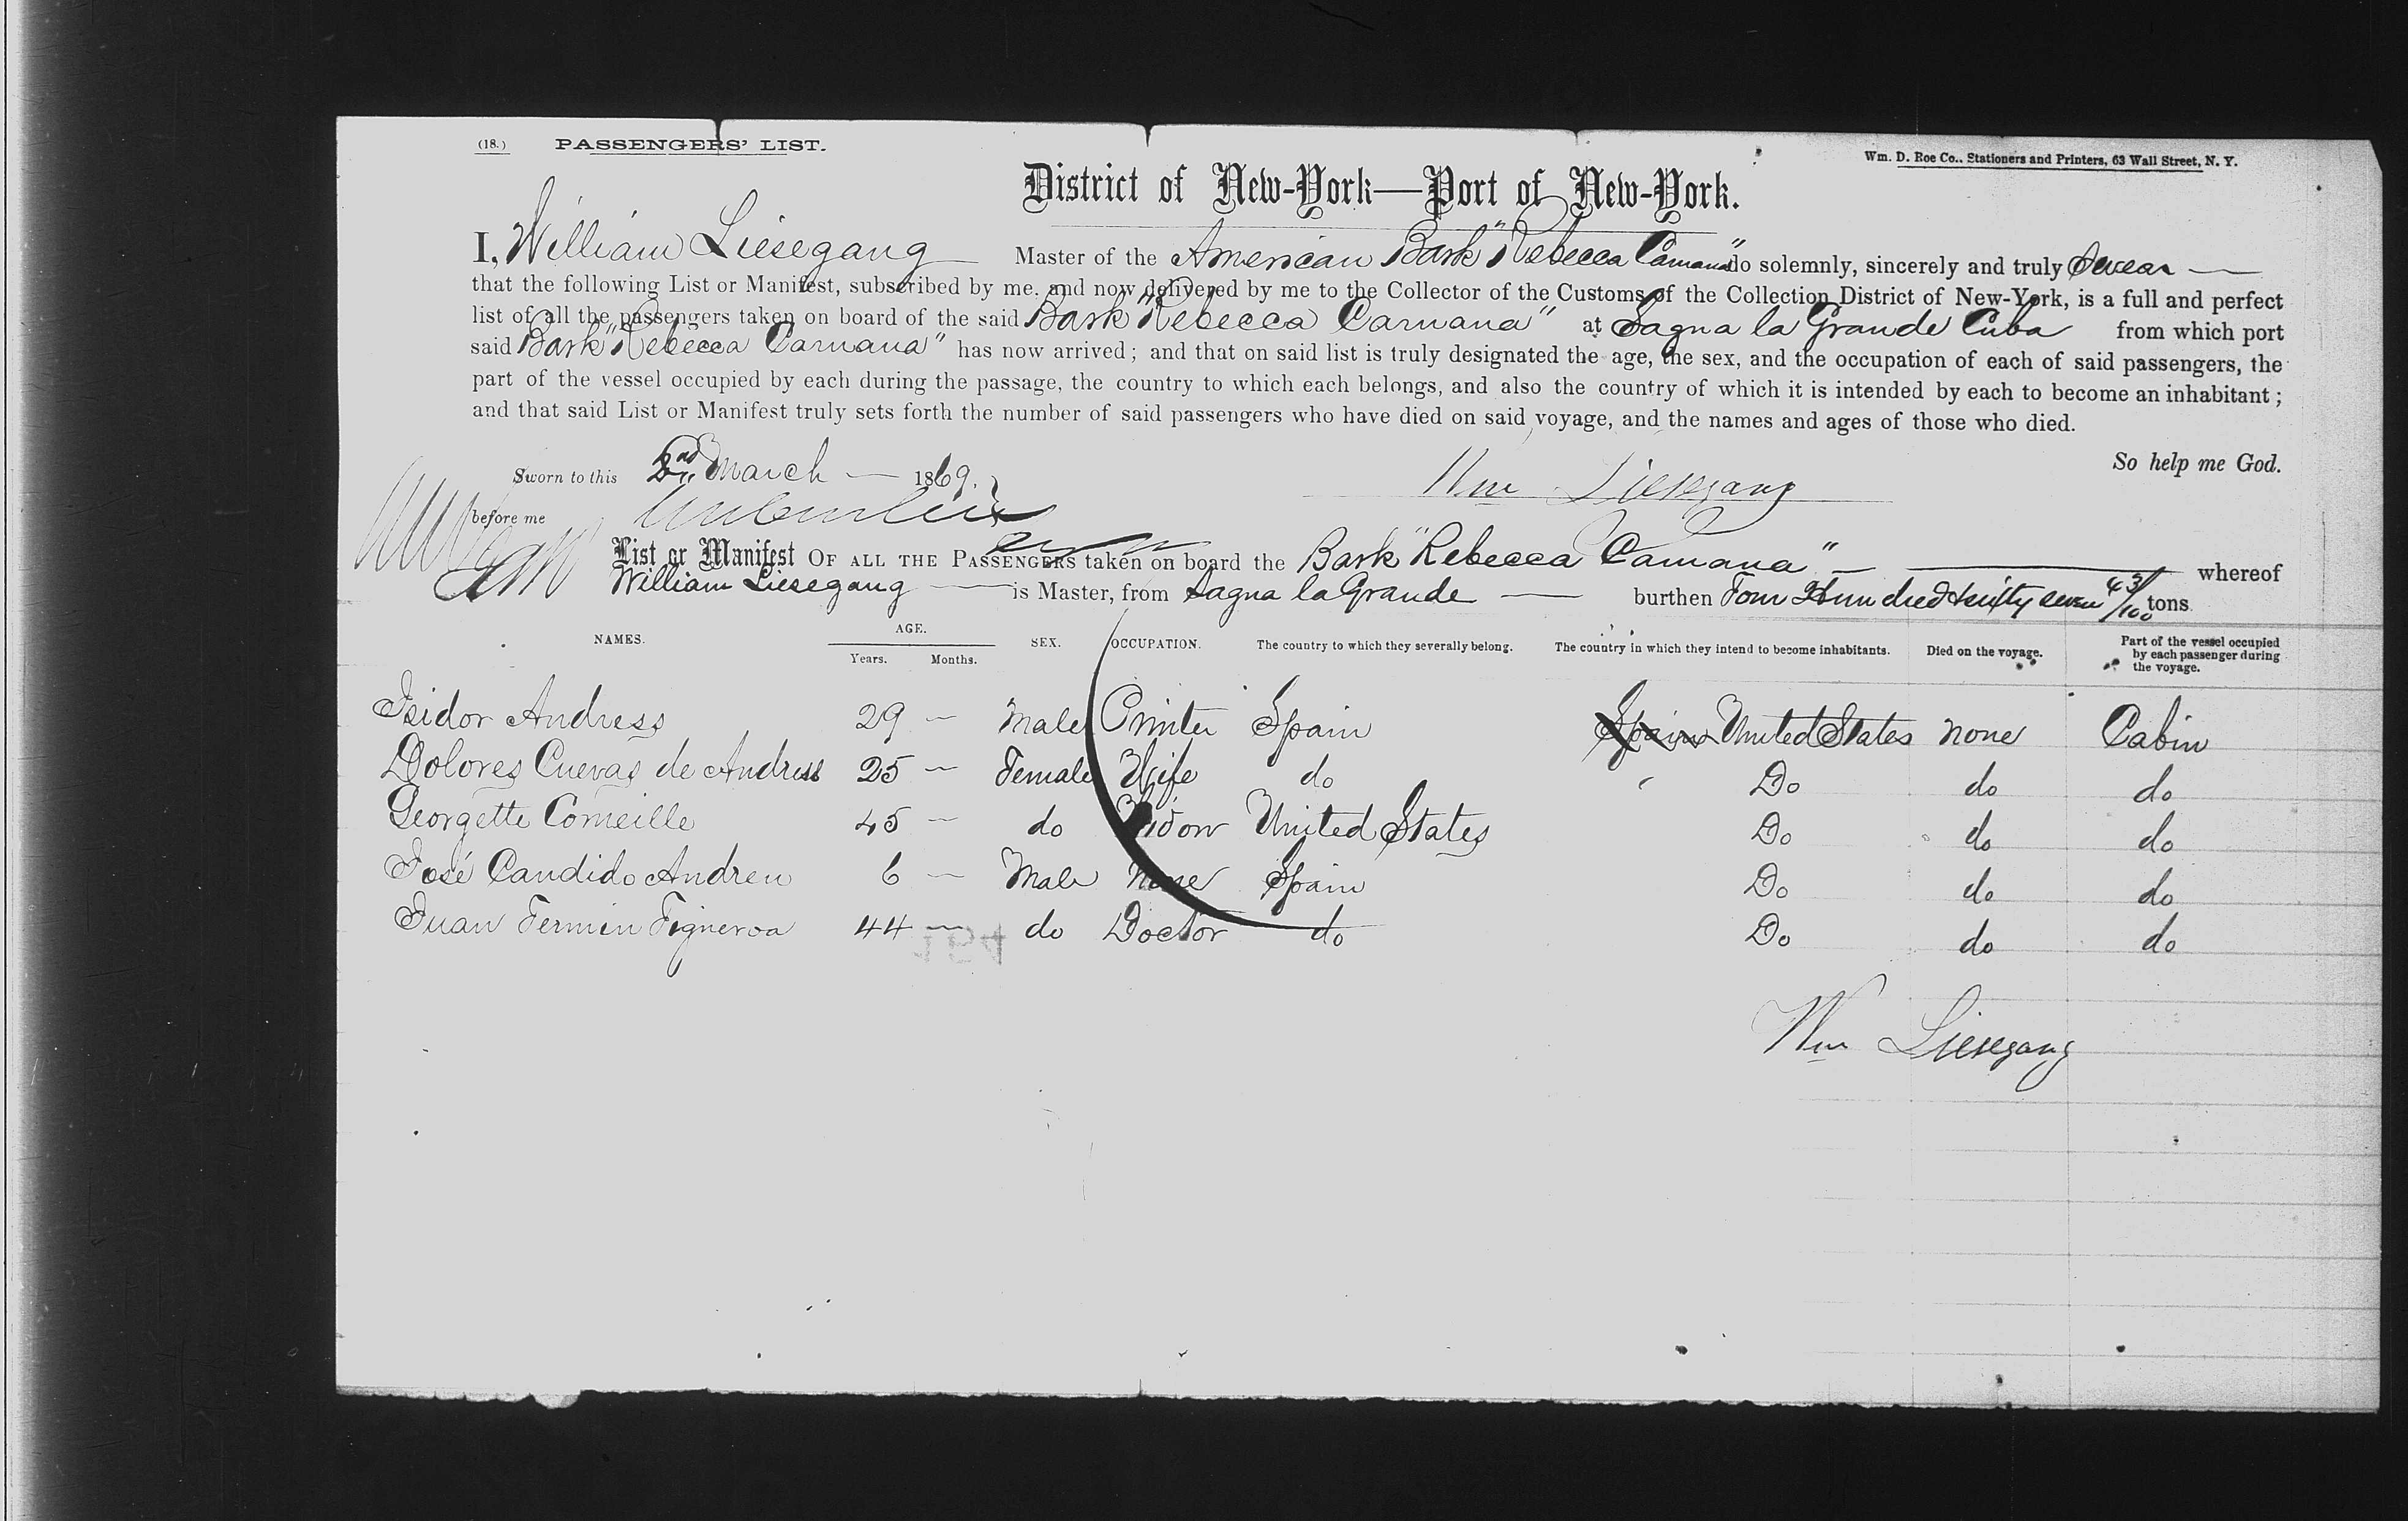 (18.) PASSENGERS' LIST.
Wm. D. Roe Co., Stationers and Printers, 63 Wall Street, N. Y.
District of New-York—Port of New-York.
I, William Liesegang Master of the American Bark "Rebecca Caruana" do solemnly, sincerely and truly Swear —
that the following List or Manifest, subscribed by me, and now delivered by me to the Collector of the Customs of the Collection District of New-York, is a full and perfect
list of all the passengers taken on board of the said Bark "Rebecca Caruana" at Sagua la Grande Cuba from which port
said Bark "Rebecca Caruana" has now arrived; and that on said list is truly designated the age, the sex, and the occupation of each of said passengers, the
part of the vessel occupied by each during the passage, the country to which each belongs, and also the country of which it is intended by each to become an inhabitant;
and that said List or Manifest truly sets forth the number of said passengers who have died on said voyage, and the names and ages of those who died.
So help me God.
Sworn to this 2nd March — 1869. Wm Liesegang
before me
List or Manifest OF ALL THE PASSENGERS taken on board the Bark "Rebecca Caruana" — whereof
William Liesegang — is Master, from Sagua la Grande — burthen Four Hundred & seven 43/100 tons.
NAMES. AGE. Years. Months. SEX. OCCUPATION. The country to which they severally belong. The country in which they intend to become inhabitants. Died on the voyage. Part of the vessel occupied by each passenger during the voyage.
Isidor Andress 29 — Male Printer Spain Spain United States none Cabin
Dolores Cuevas de Andress 25 — Female Wife do Do do do
Georgette Corneille 45 — do Widow United States Do do do
José Candido Andreu 6 — Male None Spain Do do do
Juan Fermin Figueroa 44 — do Doctor do Do do do
Wm Liesegang